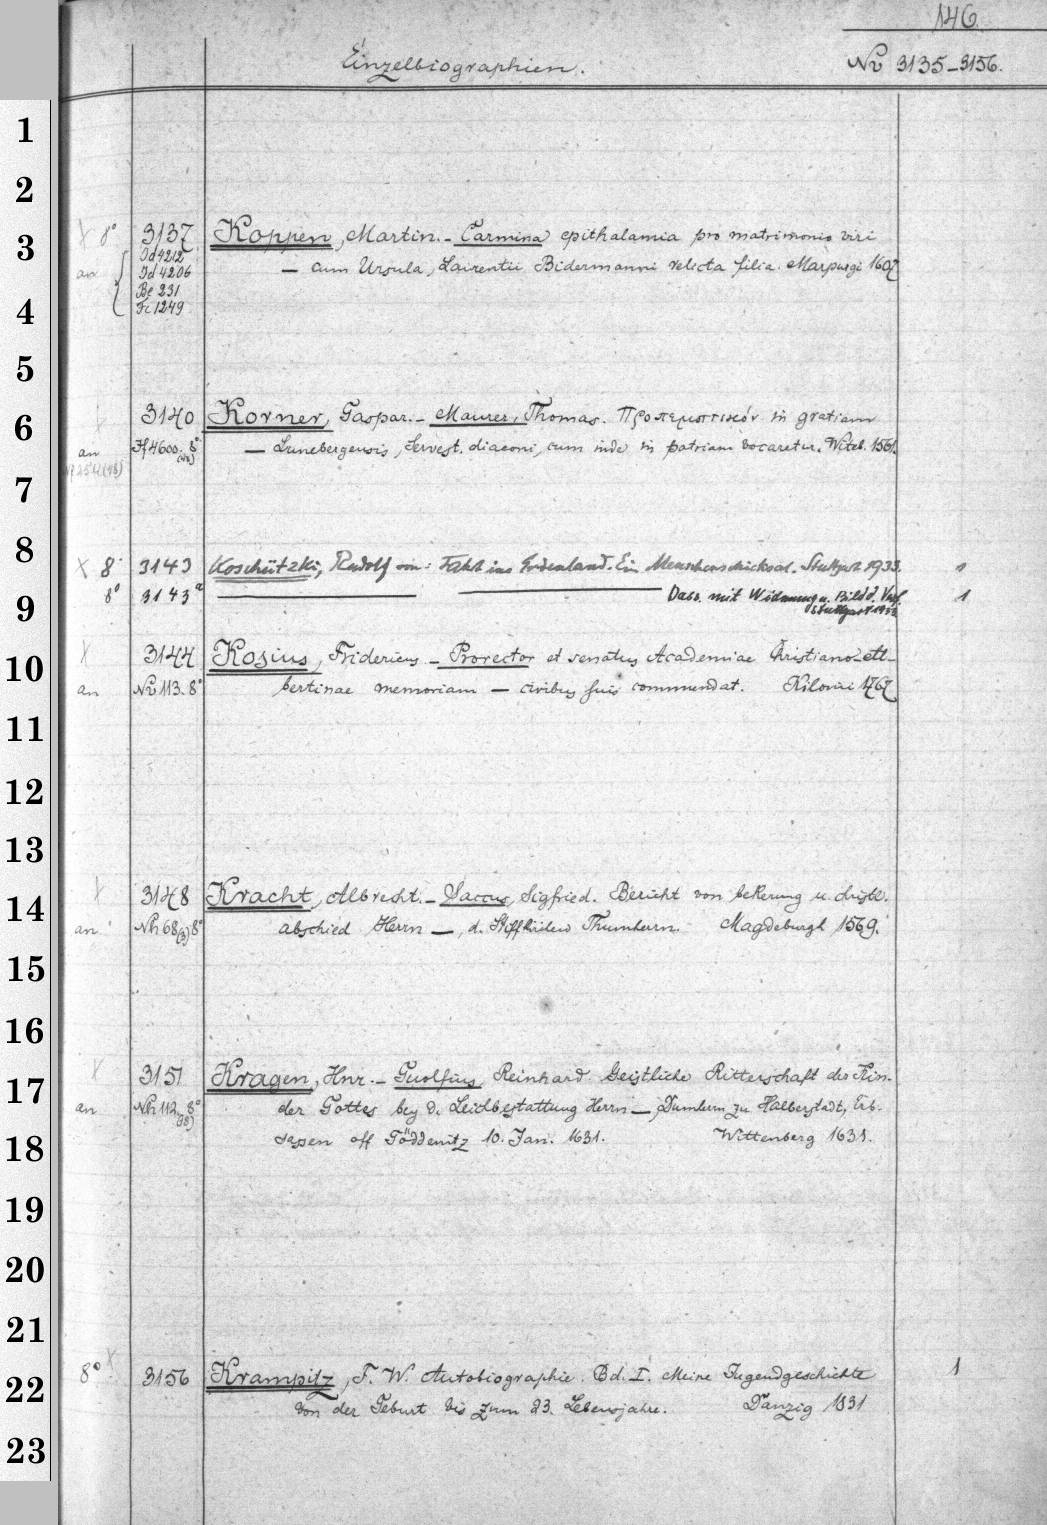 146.
Einzelbiographien. Nv 3135-3156.
1
2
3
4
5
6
7
8
9
10
11
12
13
14
15
16
17
18
19
20
21
22
23
X 8° 3137 Koppen, Martin. - Carmina epithalamia pro matrimonio viri
Od 4212
an Dd 4206 — cum Ursula, Laurentii Bidermanni relicta filia. Marpurgi 1607
Be 231
Fc 1249
3140 Korner, Gaspar. - Maurer, Thomas. Προπεμπτικόν in gratiam
an Ff 4600. 8° — Lunebergensis, Servest. diaconi, cum inde in patriam vocaretur. Witeb. 1561.
X 8° 3143 Koschützki, Rudolf von: Fahrt ins Erdenland. Ein Menschenschicksal. Stuttgart 1933. 1
8° 3143a — — Dass. mit Widmung u. Bild d. Verf. 1
Stuttgart 1933
X 3144 Kosius, Fridericus - Prorector et senatus Academiae Christiano-Al-
an Nv 113. 8° bertinae memoriam — civibus suis commendat. Kilonii 1767
X 3148 Kracht, Albrecht. - Saccus, Sigfried. Bericht von bekerung u. christl.
an Nh 68 8° abschied Herrn —, d. Stifftkirchen Thumherrn. Magdeburgk 1569.
X 3151 Kragen, Hnr. - Guolfius, Reinhard Geistliche Ritterschaft der Kin-
an Nh 112 8° der Gottes bey d. Leichbestattung Herrn —, Dumherrn zu Halberstadt, Erb-
sassen off Göddenitz 10. Jan. 1631. Wittenberg 1631.
8° X 3156 Krampitz, F. W. Autobiographie. Bd. I. Meine Jugendgeschichte 1
von der Geburt bis zum 23. Lebensjahre. Danzig 1831